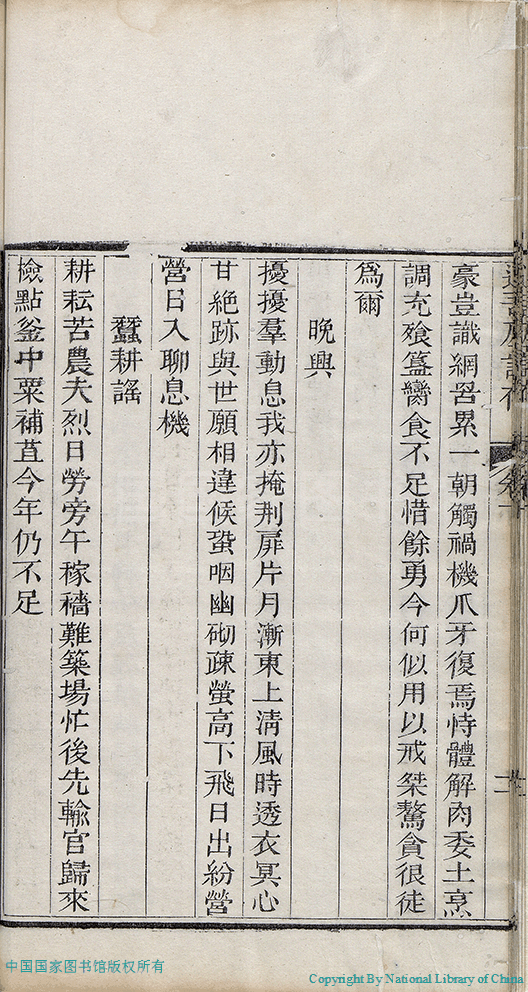 豪豈識網罟累一朝觸禍機爪牙復焉恃體解肉委土烹
調充飱簋臠食不足惜餘勇今何似用以戒桀驁貪很徒
為爾
晚興
擾擾羣動息我亦掩荆扉片月漸東上清風時透衣冥心
甘絶跡與世願相違候蛩咽幽砌疎螢高下飛日出紛營
營日入聊息機
蠶耕謠
耕耘苦農夫烈日勞旁午稼穡難築場忙後先輸官歸來
檢點釜中粟補苴今年仍不足
中国国家图书馆版权所有
Copyright By National Library of China